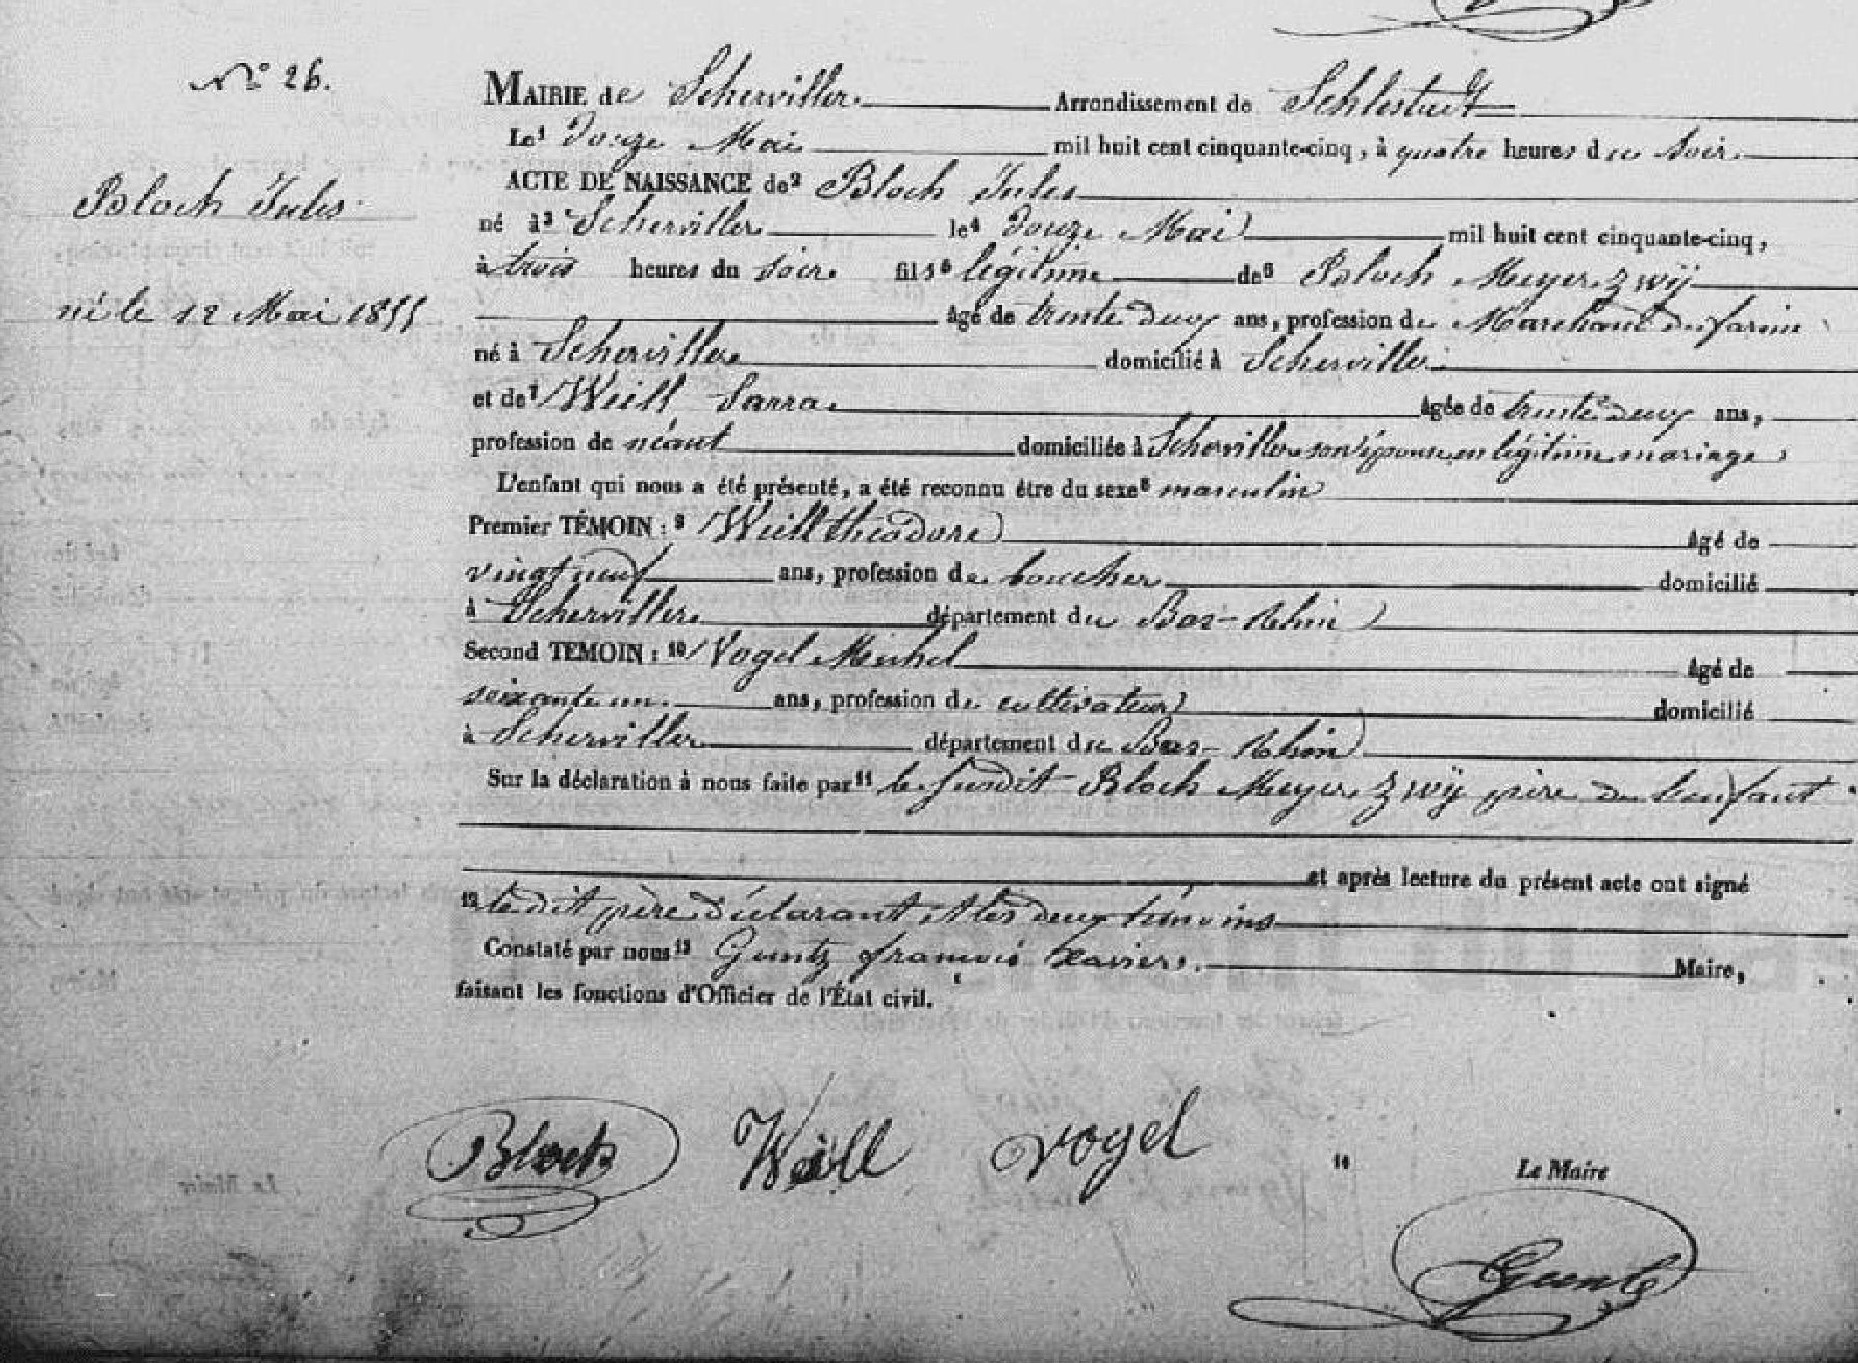 N° 26.
Bloch Jules
né le 12 Mai 1855
MAIRIE de Scherviller Arrondissement de Schlestadt
Le¹ Douze Mai mil huit cent cinquante-cinq, à quatre heures du Soir.
ACTE DE NAISSANCE de² Bloch Jules
né à³ Scherviller le⁴ Douze Mai mil huit cent cinquante-cinq,
à trois heures du soir. fils⁵ légitime de⁶ Bloch Meyer Zwÿ
âgé de trente deux ans, profession de Marchand de farine
né à Scherviller domicilié à Scherviller
et de⁷ Weill Sarra âgée de trente deux ans,
profession de néant domiciliée à Scherviller son épouse en légitime mariage
L'enfant qui nous a été présenté, a été reconnu être du sexe⁸ masculin
Premier TÉMOIN : ⁹ Weill théodore âgé de
vingt neuf ans, profession de boucher domicilié
à Scherviller département du Bas-Rhin
Second TEMOIN : ¹⁰ Vogel Michel âgé de
soixante un ans, profession de cultivateur domicilié
à Scherviller département du Bas-Rhin
Sur la déclaration à nous faite par¹¹ le susdit Bloch Meyer Zwÿ père de l'enfant
et après lecture du présent acte ont signé
¹² le dit père déclarant et les deux témoins
Constaté par nous¹³ Guntz francois Xavier. Maire,
faisant les fonctions d'Officier de l'État civil.
Bloch Weill Vogel
14 Le Maire
Guntz